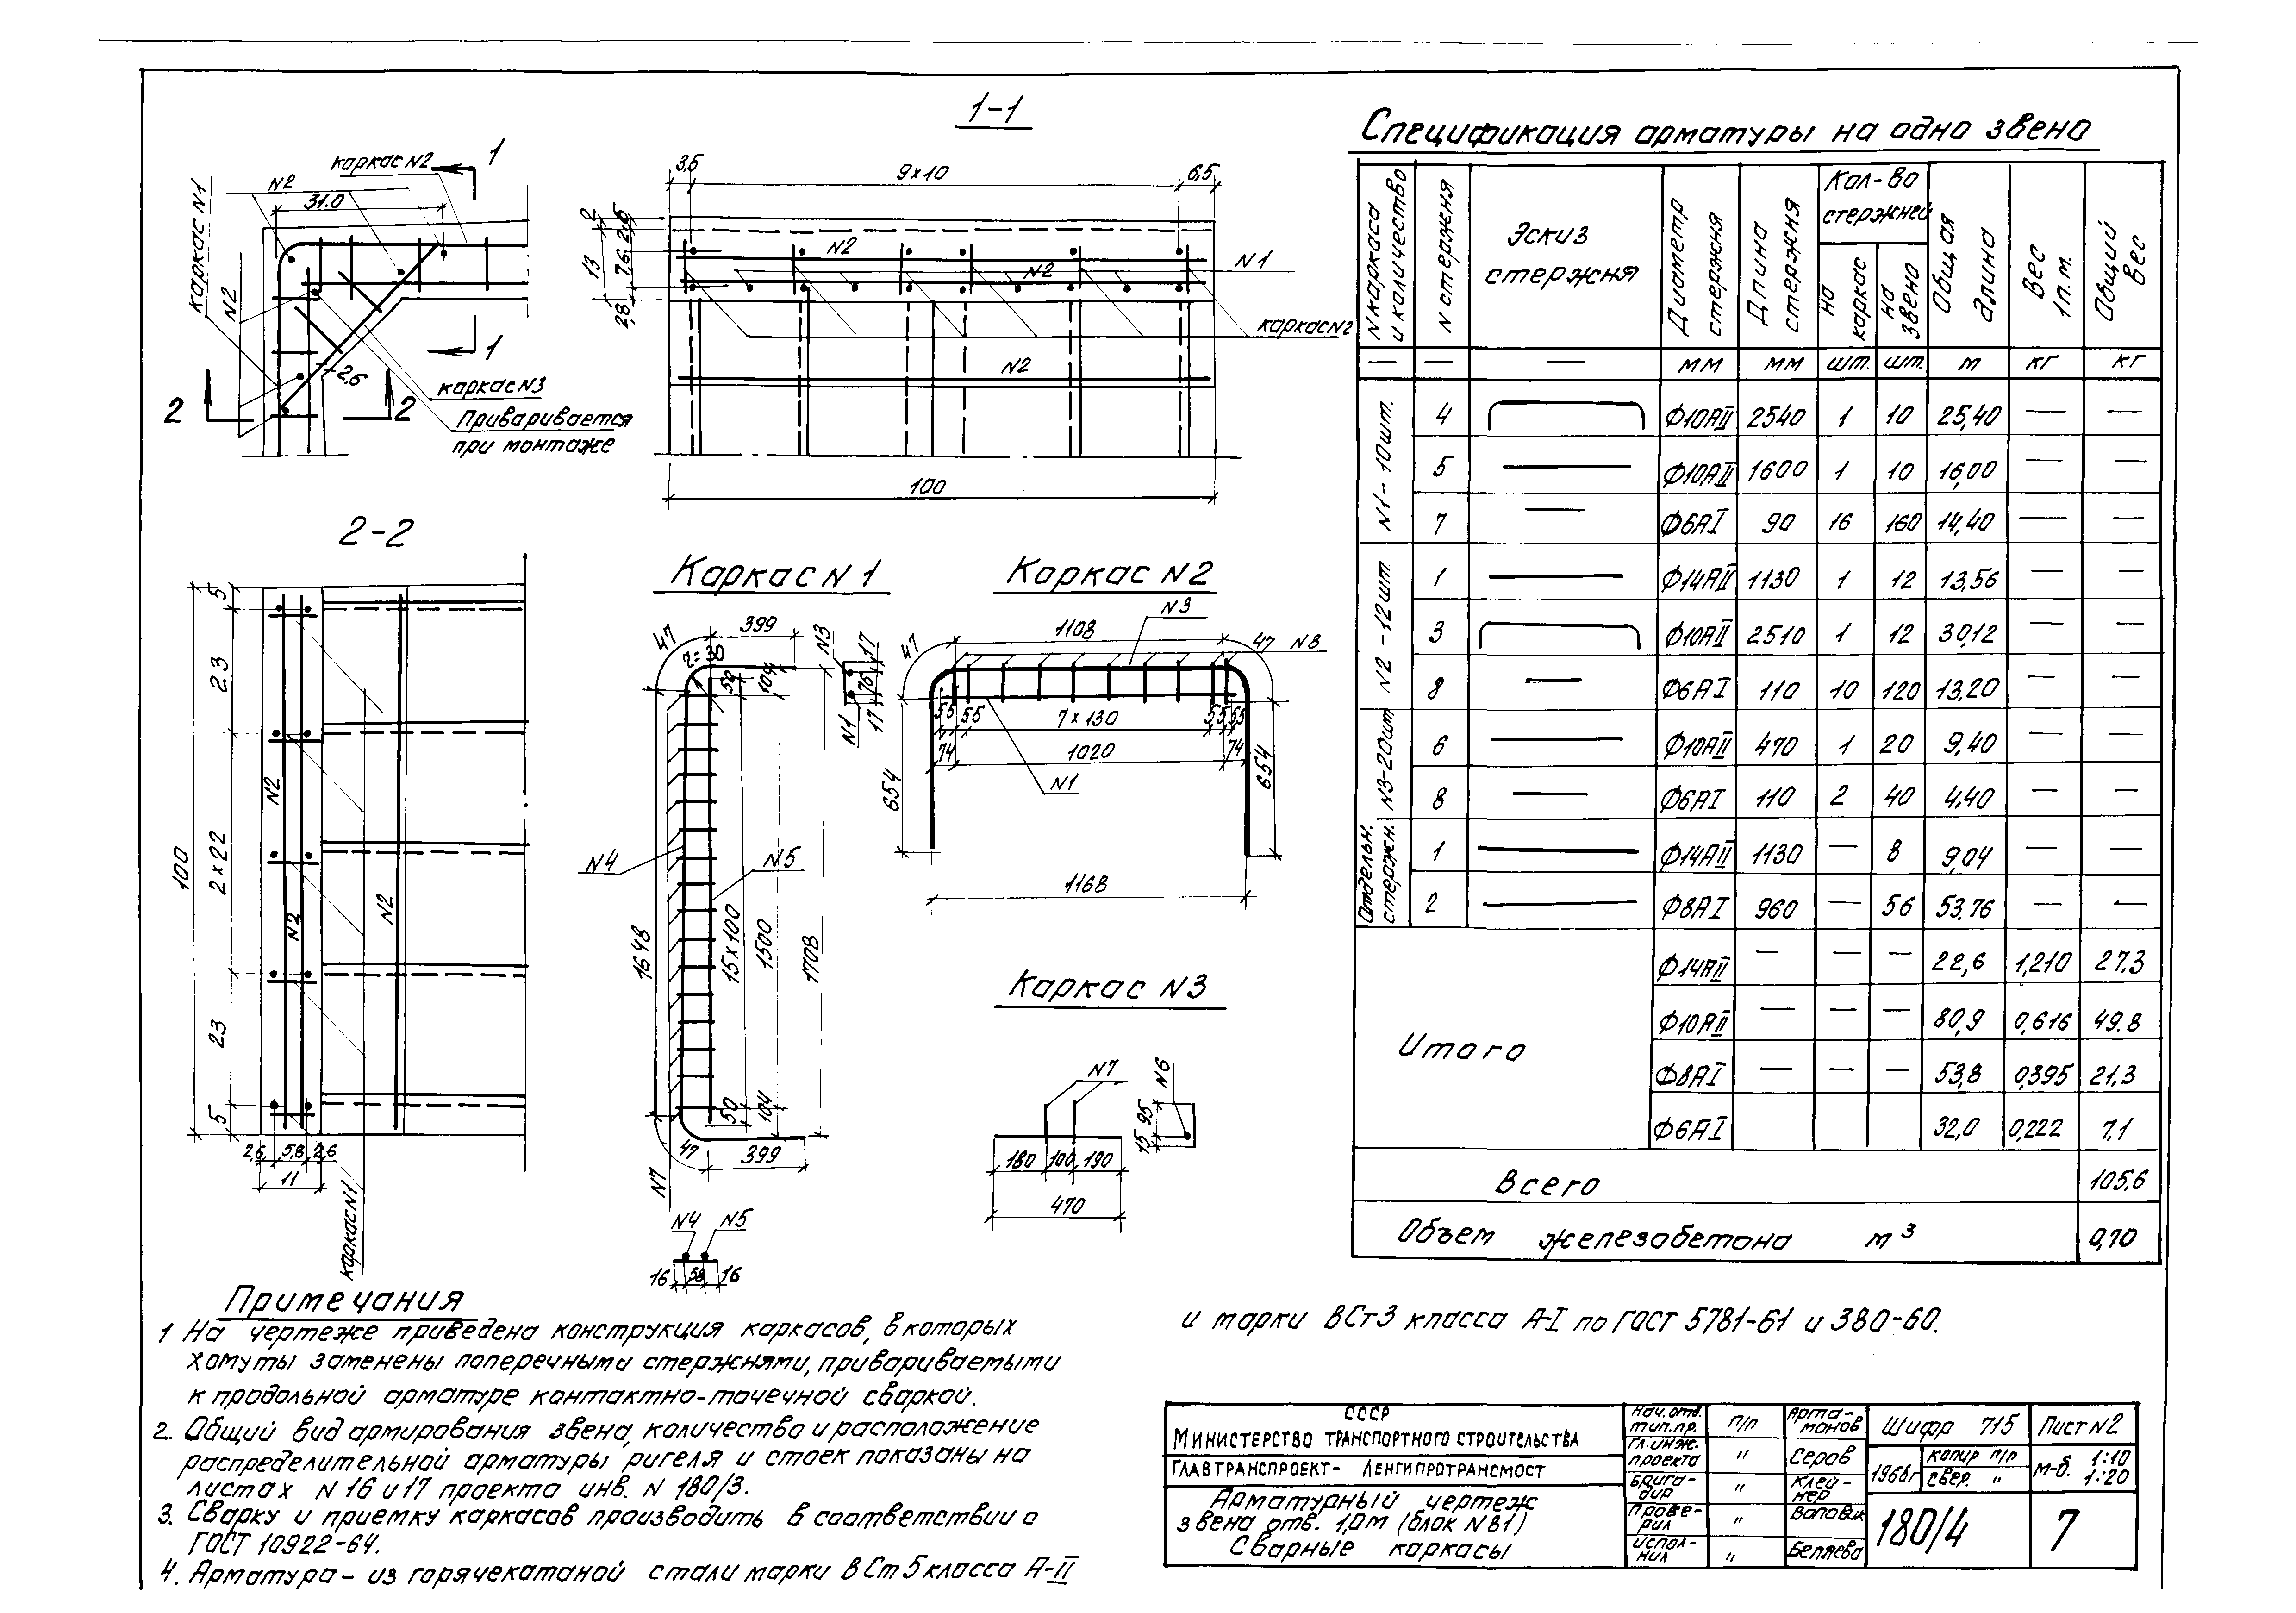 1-1
каркас N2
1
N2
31.0
каркас N1
N2
2,6
1
каркас N3
2
2
Приваривается
при монтаже
3,5
9×10
6,5
2
2,6
13
7,6
2,8
N2
N2
N1
каркас N2
N2
100
2-2
5
23
2×22
23
5
100
N2
N2
N2
2,6
5,8
2,6
11
каркас N1
Каркас N1
47
399
r=30
50
104
N3
17
76
17
N1
N4
N5
1648
15×100
1500
1708
50
104
47
399
N7
N4
N5
16
58
16
Каркас N2
N3
1108
47
47
N8
55
55
7×130
55
55
74
1020
74
654
654
N1
1168
Каркас N3
N7
N6
95
15
180
100
190
470
Спецификация арматуры на одно звено
N каркаса и количество
N стержня
Эскиз стержня
Диаметр стержня
Длина стержня
Кол-во стержней
на каркас
на звено
Общая длина
Вес 1п.м.
Общий вес
— — — мм мм шт. шт. м кг кг
N1-10шт.
4 Ф10АII 2540 1 10 25,40 — —
5 Ф10АII 1600 1 10 16,00 — —
7 Ф6АI 90 16 160 14,40 — —
N2-12шт.
1 Ф14АII 1130 1 12 13,56 — —
3 Ф10АII 2510 1 12 30,12 — —
8 Ф6АI 110 10 120 13,20 — —
N3-20шт
6 Ф10АII 470 1 20 9,40 — —
8 Ф6АI 110 2 40 4,40 — —
Отдельн. стержн.
1 Ф14АII 1130 — 8 9,04 — —
2 Ф8АI 960 — 56 53,76 — —
Итого
Ф14АII — — — 22,6 1,210 27,3
Ф10АII — — — 80,9 0,616 49.8
Ф8АI — — — 53,8 0,395 21,3
Ф6АI 32,0 0,222 7,1
Всего 105,6
Объем железобетона м³ 0,70
Примечания
1 На чертеже приведена конструкция каркасов, в которых
хомуты заменены поперечными стержнями, привариваемыми
к продольной арматуре контактно-точечной сваркой.
2. Общий вид армирования звена, количество и расположение
распределительной арматуры ригеля и стоек показаны на
листах N 16 и 17 проекта инв. N 180/3.
3. Сварку и приемку каркасов производить в соответствии с
ГОСТ 10922-64.
4. Арматура - из горячекатаной стали марки ВСт5 класса А-II
и марки ВСт3 класса А-I по ГОСТ 5781-61 и 380-60.
СССР
Министерство транспортного строительства
Главтранспроект- Ленгипротрансмост
Арматурный чертеж
звена отв. 1,0м (блок N81)
Сварные каркасы
Нач. отд. тип.пр. п/п Артамонов
Гл. инж. проекта " Серов
Бригадир " Клейнер
Проверил " Воловик
Исполнил " Беляева
Шифр 715
Лист N2
1968г
копир п/п
свер. "
М-б. 1:10
1:20
180/4
7